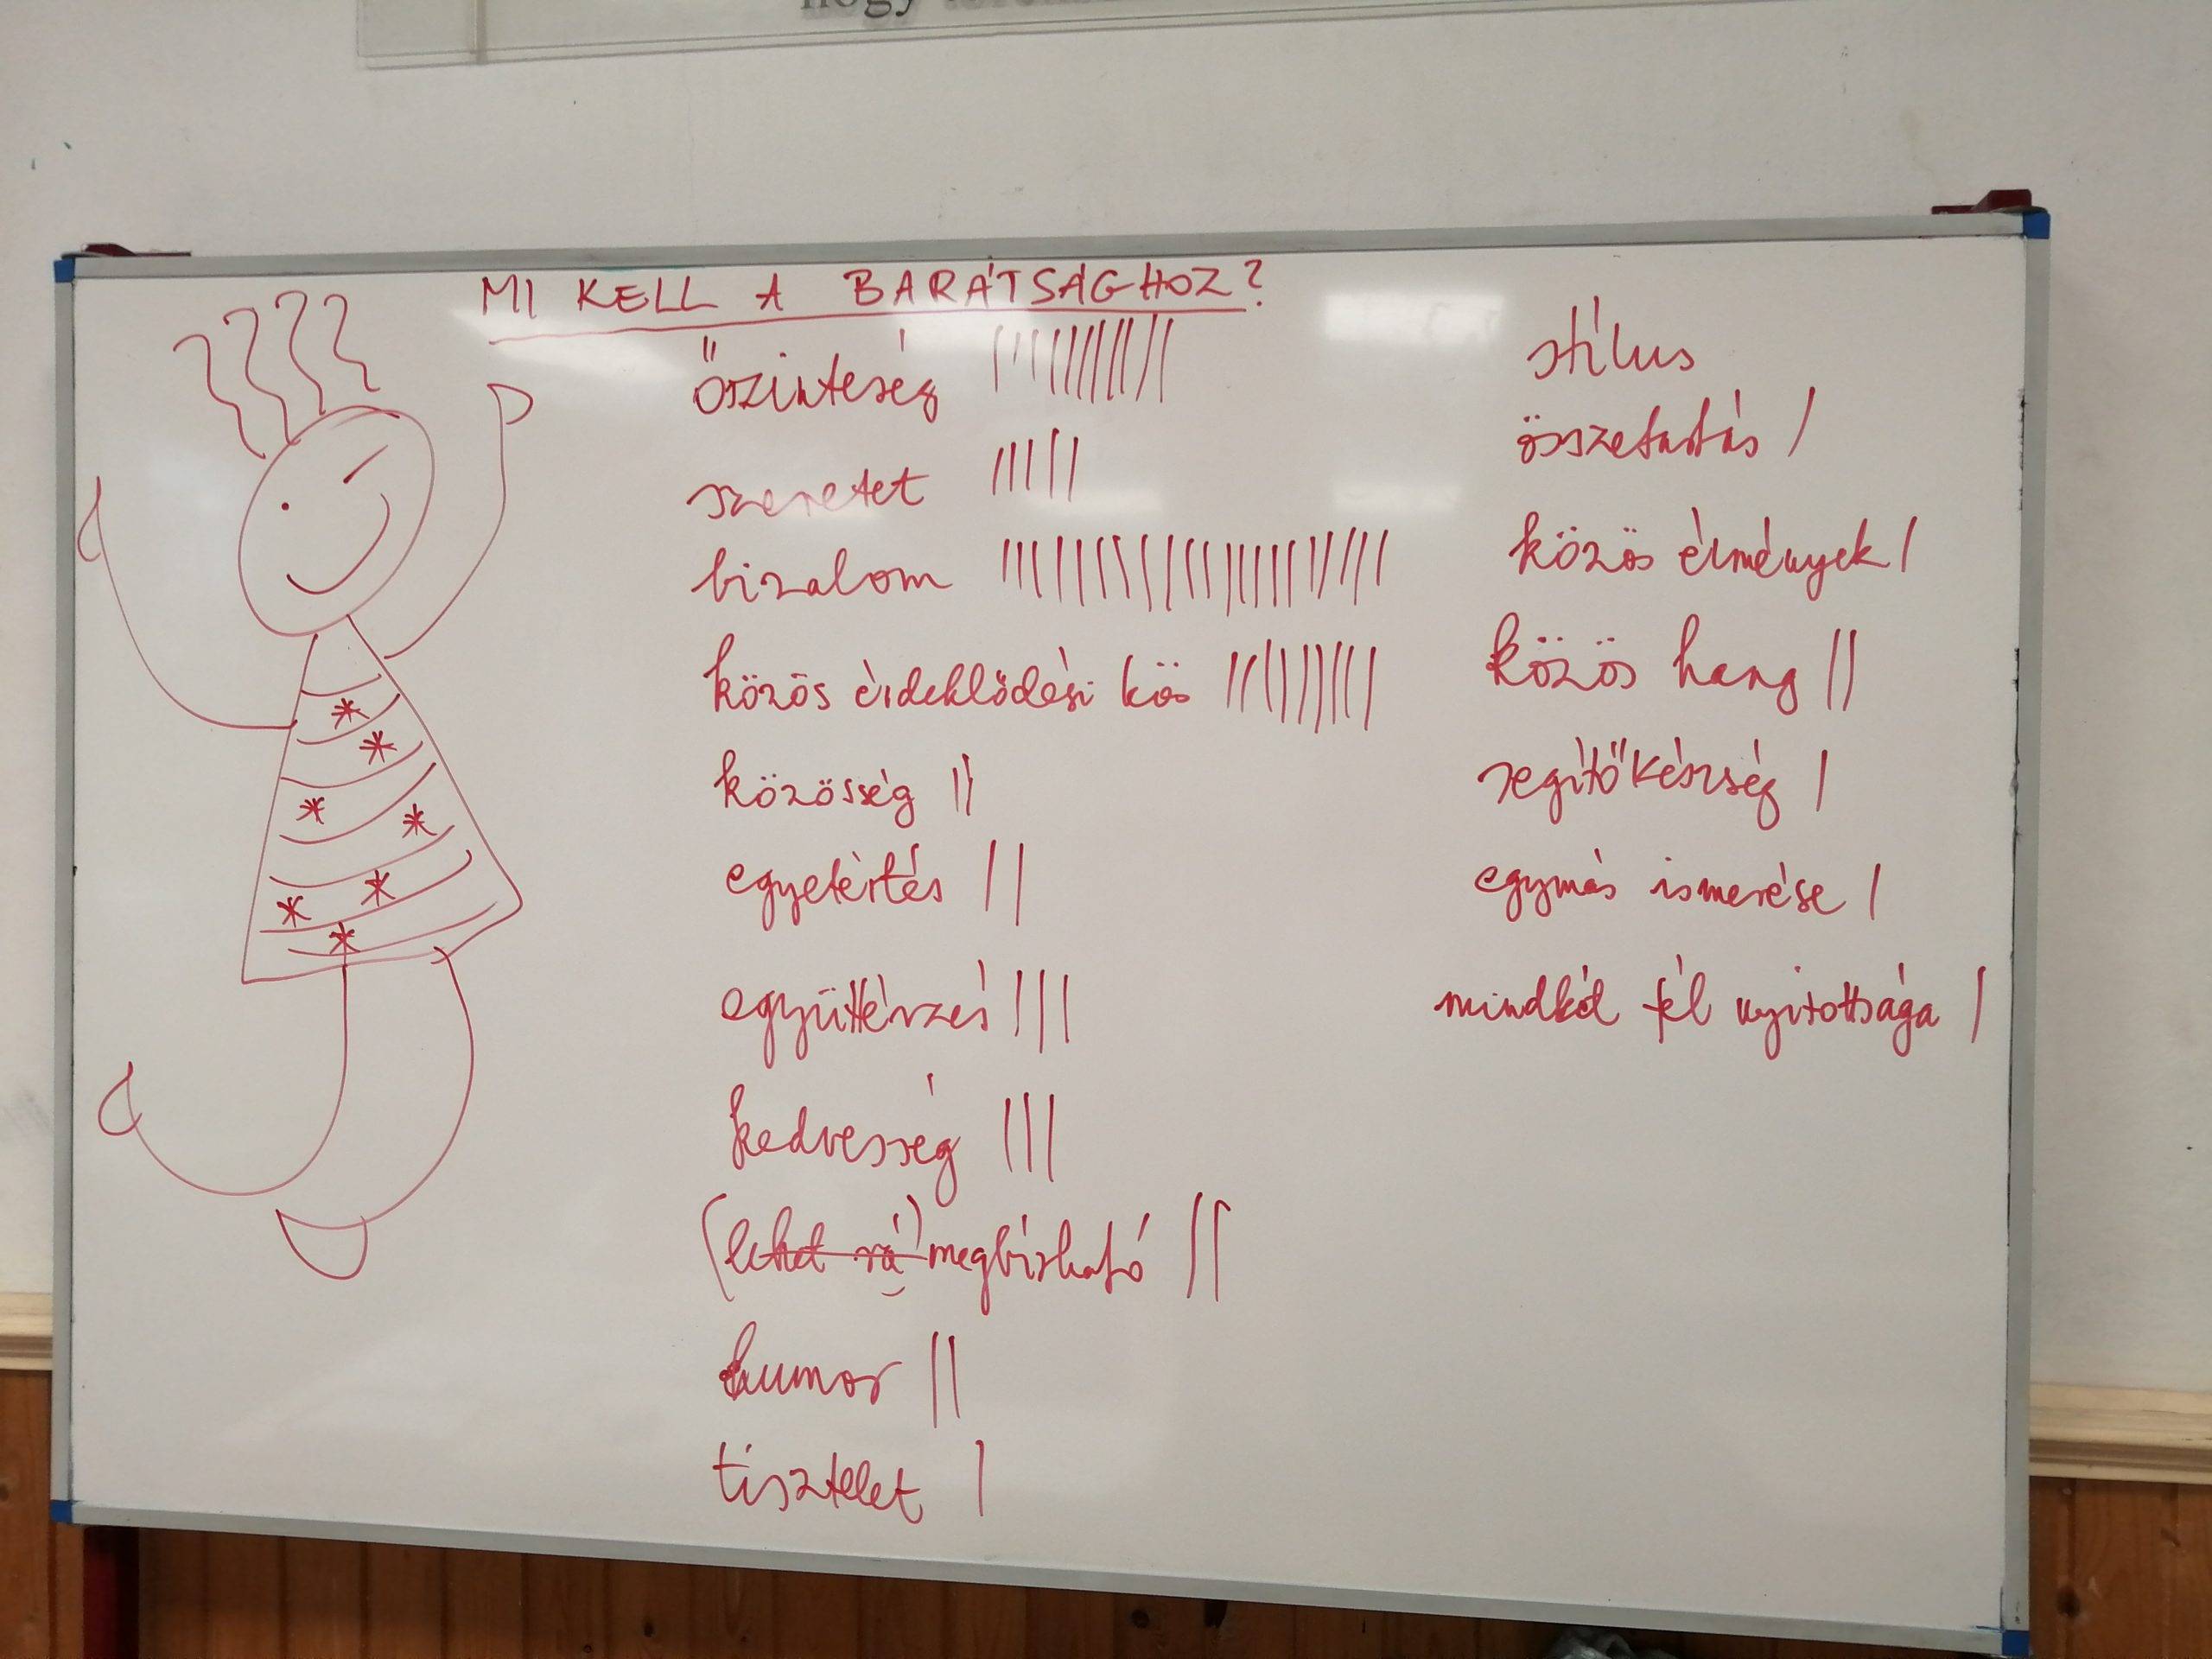 hogy
MI KELL A BARÁTSÁGHOZ?
őszinteség ||||||||||||
szeretet ||||||
bizalom ||||||||||||||||||||||
közös érdeklődési kör ||||||||||
közösség ||
egyetértés ||
együttérzés |||
kedvesség |||
(lehet rá) megbízható ||
humor ||
tisztelet |
stílus
összetartás |
közös élmények |
közös hang ||
segítőkészség |
egymás ismerése |
mindkét fél nyitottsága |